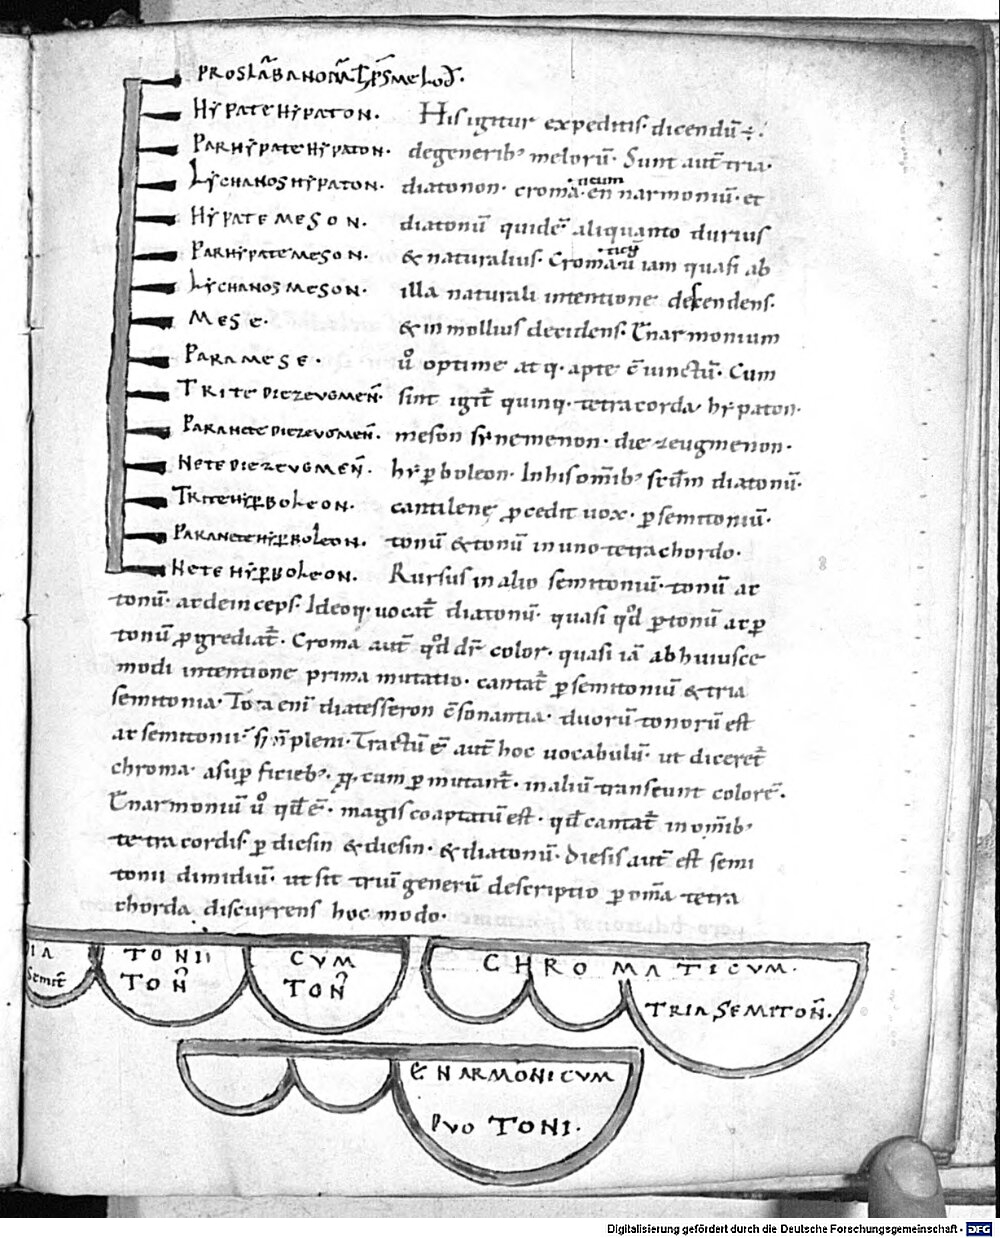 PROSLÃBANOM̃. T̃PSMELOD̃.
HYPATEHYPATON.
PARHYPATEHYPATON.
LYCHANOSHYPATON.
HYPATEMESON.
PARHYPATEMESON.
LYCHANOSMESON.
MESE.
PARAMESE.
TRITE DIEZEVGMEÑ.
PARANETE DIEZEVGMEÑ.
NETE DIEZEVGMEÑ.
TRITEHYP̱BOLEON.
PARANETEHYP̱BOLEON.
NETE HYP̱BOLEON.
Hisigitur expeditis. dicendũ ÷.
degenerib; melorũ. Sunt aut̃ tria.
diatonon. croma.ticum enñarmoniũ. et
diatonũ quidẽ aliquanto durius
& naturalius. Croma.ticũ ũ iam quasi ab
illa naturali intentione descendens.
& in mollius decidens. Enarmonium
ũ optime at q. apte c̃ iunctũ. Cum
sint igit̃ quinq. tetracorda hypaton.
meson synemenon. die zeugmenon.
hyp̱boleon. Inhis om̃ib; scd̃m diatonũ.
cantilenę p̱cedit uox. p̱ semitoniũ.
tonũ & tonũ in uno tetrachordo.
Rursus in alio semitoniũ. tonũ at
tonũ. ac deinceps. Ideoq. uocat̃ diatonũ. quasi qd̃ p̱ tonũ ac p̱
tonũ p̱grediat̃. Croma aut̃ qd̃ dr̃ color. quasi iã ab huiusce
modi intentione prima mutatio. cantat̃ p̱ semitoniũ & tria
semitonia. Tota eni diatesseron c̃sonantia. duorũ tonorũ est
ac semitonii. s; ñ pleni. Tractũ ẽ aut̃ hoc uocabulũ. ut diceret̃
chroma. asup̱ficieb;. q̱. cum p̱mutant̃. in aliũ transeunt colorẽ.
Enarmoniũ ũ qd̃ ẽ. magis coaptatũ est. qd̃ cantat̃ in om̃ib;
tetracordis. p̱ diesin & diesin. & diatonũ. Diesis aut̃ est semi
tonii dimidiũ. ut sit triũ generũ descriptio p̱ om̃a tetra
chorda discurrens hoc modo.
IA TONII CVM
Semit̃ TOÑ TOÑ
CHROMATICVM.
TRIA SEMITOÑ.
ENARMONICVM
DVO TONI.
Digitalisierung gefördert durch die Deutsche Forschungsgemeinschaft - DFG